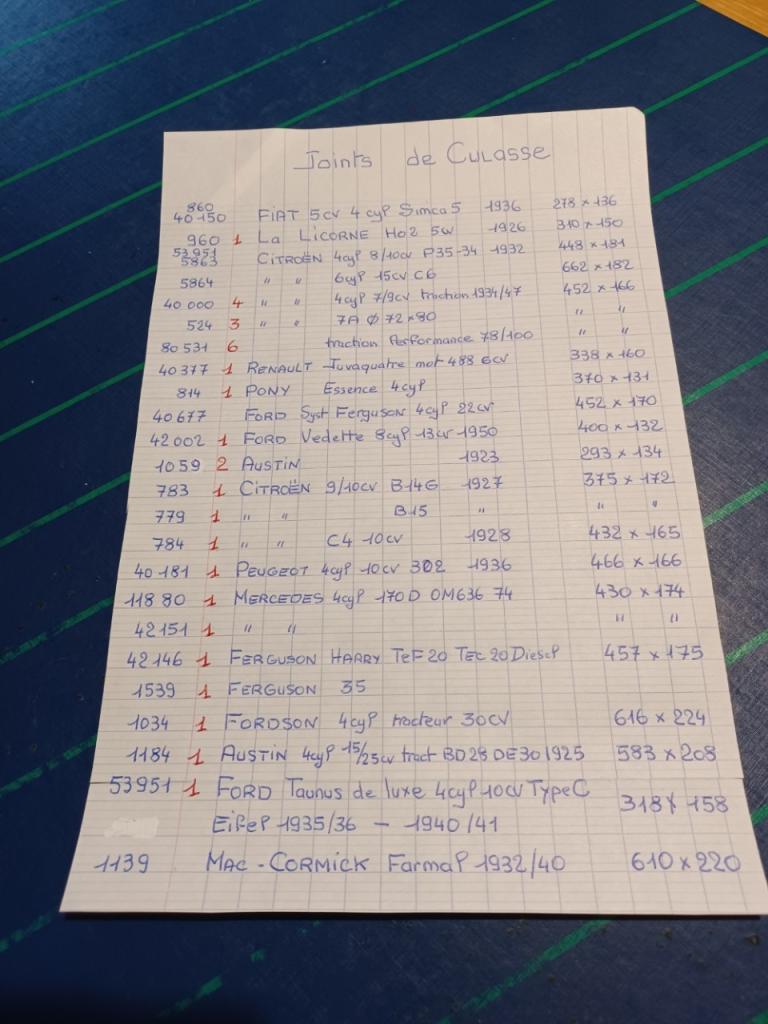 Joints de Culasse
860
40 150 FIAT 5cv 4 cyl Simca 5 1936 278 × 136
960 1 La LICORNE HO2 5W 1926 310 × 150
53951
5863 CITROËN 4cyl 8/10cv P35-34 1932 448 × 181
5864 " " 6cyl 15cv C6 662 × 182
40 000 4 " " 4cyl 7/9cv traction 1934/47 452 × 166
524 3 " " 7A Ø 72 × 80 " "
80 531 6 traction Performance 78/100 " "
40 377 1 RENAULT Juvaquatre mot 488 6cv 338 × 160
814 1 PONY Essence 4cyl 370 × 131
40 677 FORD Syst Ferguson 4cyl 22cv 452 × 170
42 002 1 FORD Vedette 8cyl 13cv 1950 400 × 132
1059 2 AUSTIN 1923 293 × 134
783 1 CITROËN 9/10cv B14G 1927 375 × 172
779 1 " " B15 " " "
784 1 " " C4 10cv 1928 432 × 165
40 181 1 PEUGEOT 4cyl 10cv 302 1936 466 × 166
118 80 1 MERCEDES 4cyl 170D OM636 74 430 × 174
42 151 1 " " " "
42 146 1 FERGUSON HARRY TeF20 TEC20 Diesel 457 × 175
1539 1 FERGUSON 35
1034 1 FORDSON 4cyl tracteur 30cv 616 × 224
1184 1 AUSTIN 4cyl 15/25cv tract BD28 DE30 1925 583 × 208
53951 1 FORD Taunus de luxe 4cyl 10cv Type C 318 × 158
Eifel 1935/36 - 1940/41
1139 MAC-CORMICK Farmal 1932/40 610 × 220